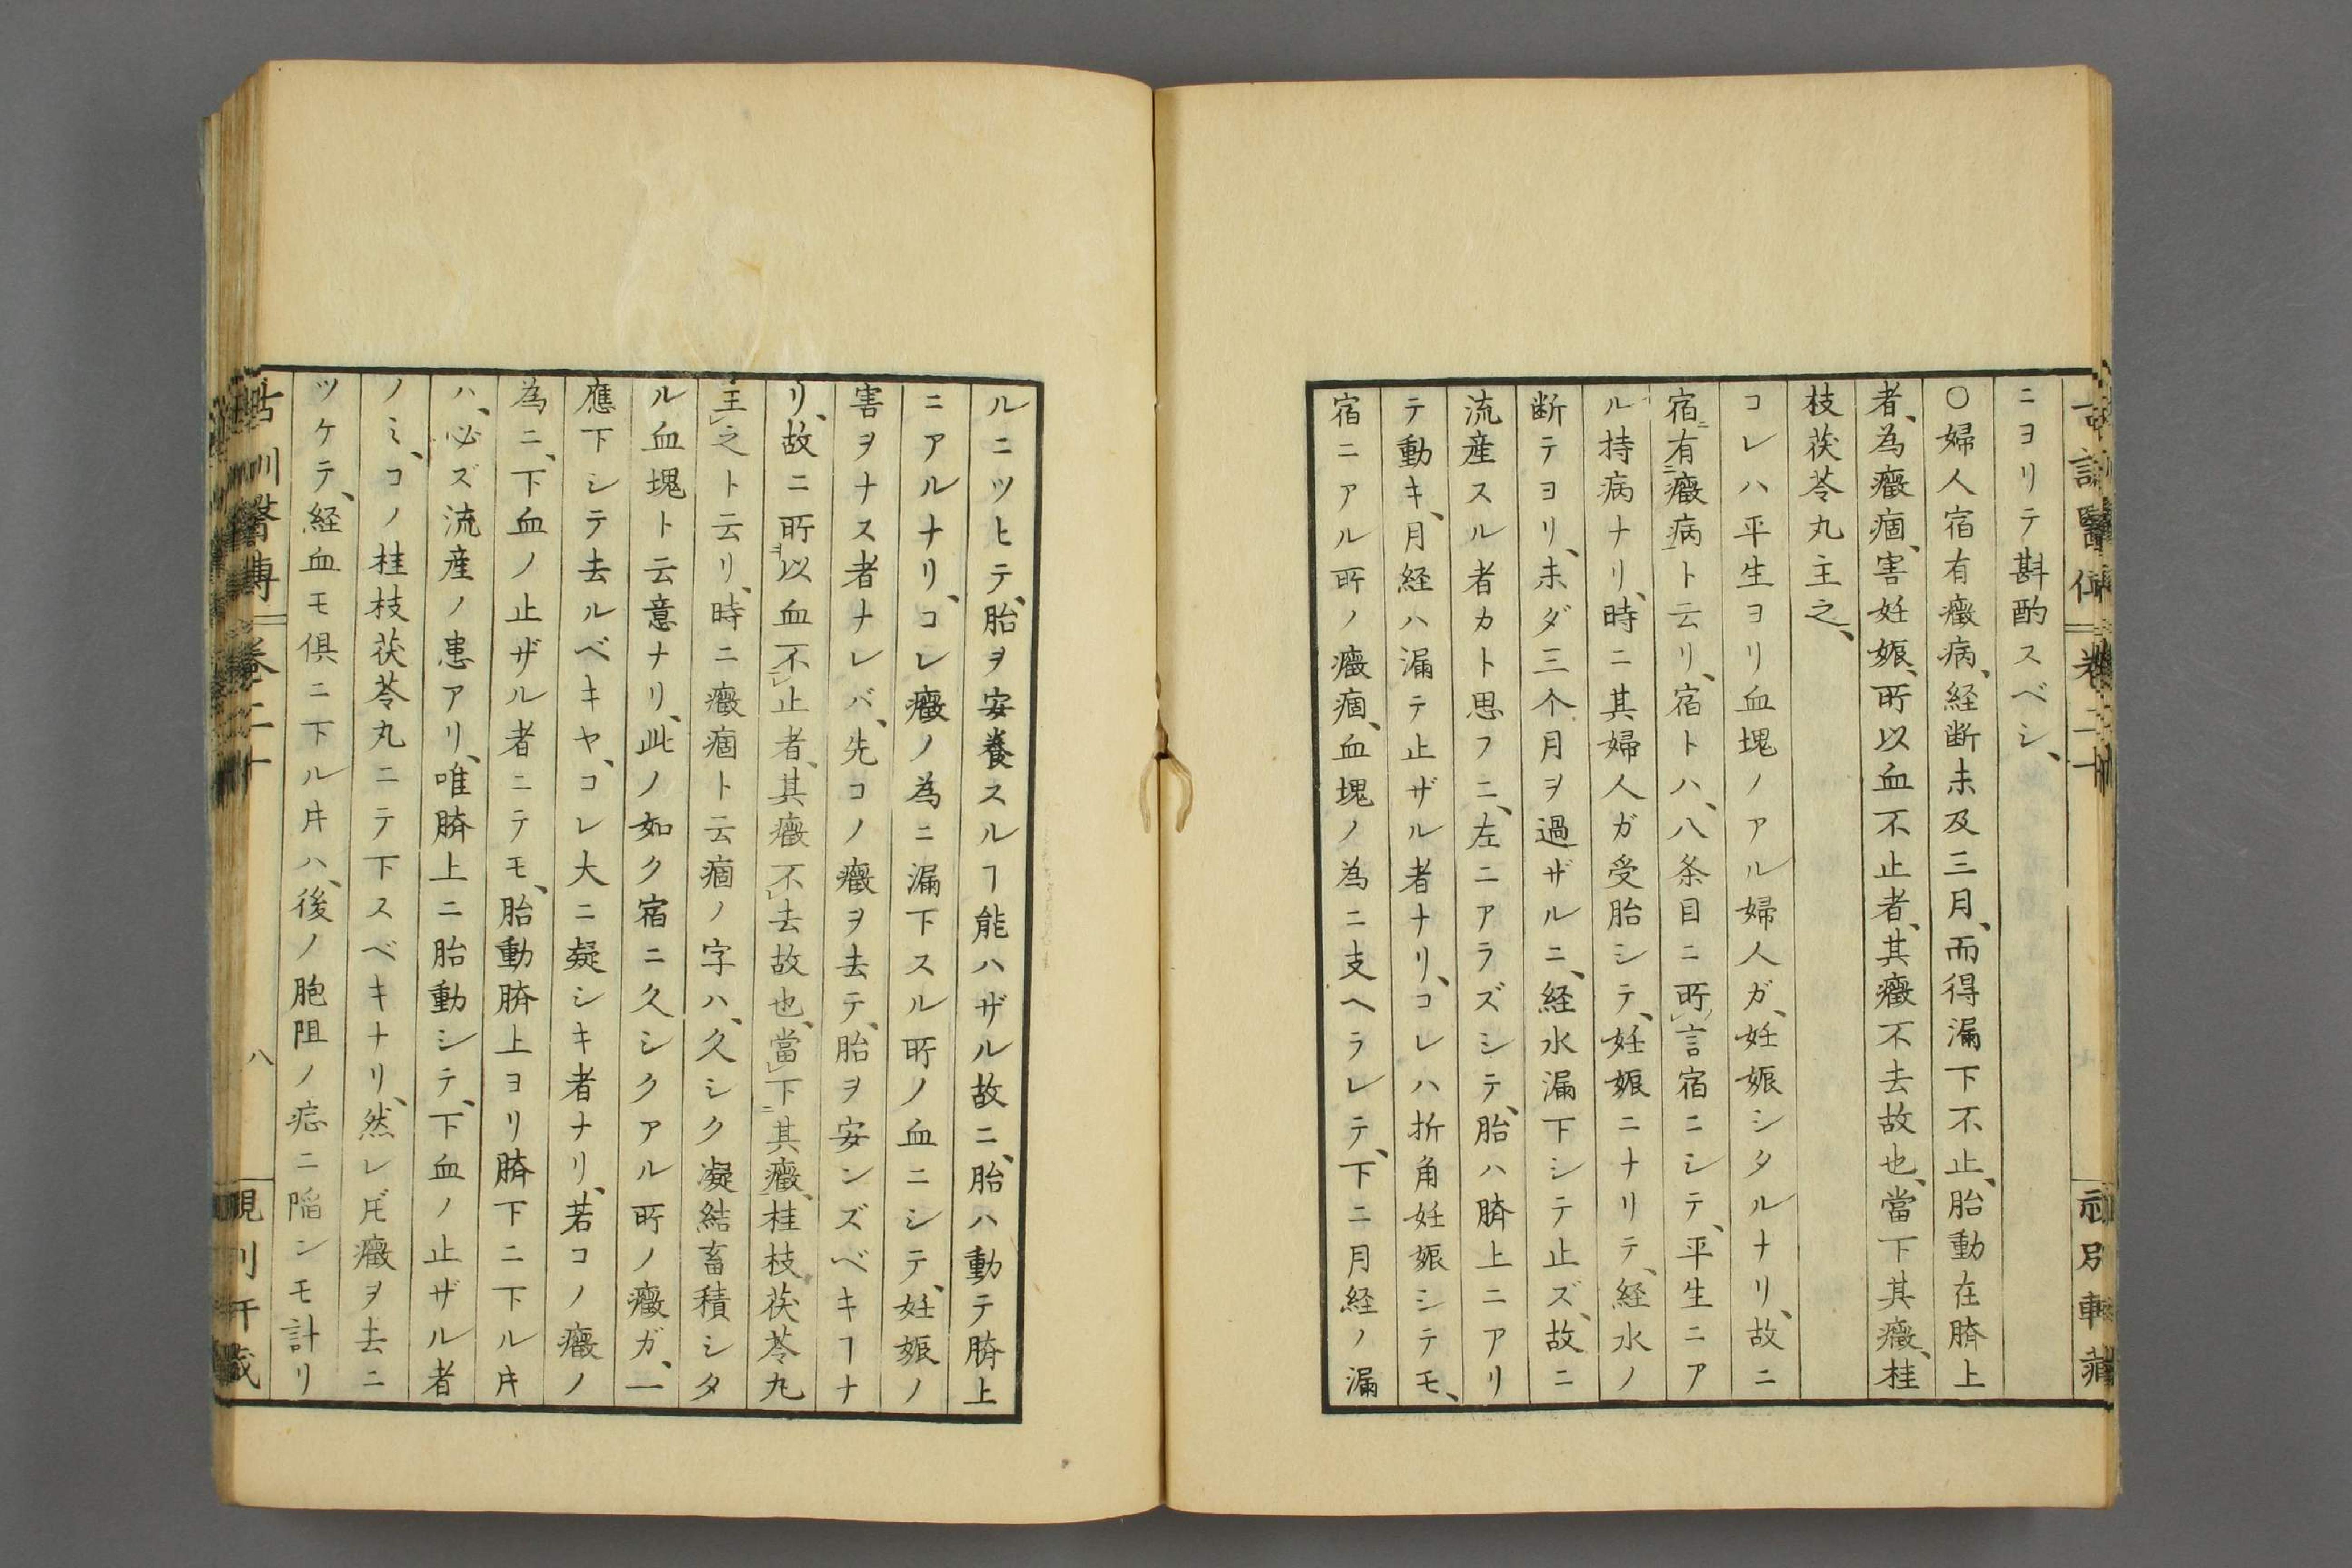 ニヨリテ斟酌スベシ、
○婦人宿有癥病、経断未及三月、而得漏下不止、胎動在臍上
者、為癥痼、害妊娠、所以血不止者、其癥不去故也、當下其癥、桂
枝茯苓丸主之、
コレハ平生ヨリ血塊ノアル婦人ガ、妊娠シタルナリ、故ニ
宿ニ有ニ癥病一ト云リ、宿トハ、八条目ニ所レ言宿ニシテ、平生ニア
ル持病ナリ、時ニ其婦人ガ受胎シテ、妊娠ニナリテ、経水ノ
断テヨリ、未ダ三个月ヲ過ザルニ、経水漏下シテ止ズ、故ニ
流産スル者カト思フニ、左ニアラズシテ、胎ハ臍上ニアリ
テ動キ、月経ハ漏テ止ザル者ナリ、コレハ折角妊娠シテモ、
宿ニアル所ノ癥痼、血塊ノ為ニ支ヘラレテ、下ニ月経ノ漏
ルニツヒテ、胎ヲ安養スルヿ能ハザル故ニ、胎ハ動テ臍上
ニアルナリ、コレ癥ノ為ニ漏下スル所ノ血ニシテ、妊娠ノ
害ヲナス者ナレバ、先コノ癥ヲ去テ、胎ヲ安ンズベキヿナ
リ、故ニ所ヲ以血不レ止者、其癥不レ去故也、當レ下ニ其癥一、桂枝茯苓丸
主レ之ト云リ、時ニ癥痼ト云痼ノ字ハ、久シク凝結畜積シタ
ル血塊ト云意ナリ、此ノ如ク宿ニ久シクアル所ノ癥ガ、一
應下シテ去ルベキヤ、コレ大ニ凝シキ者ナリ、若コノ癥ノ
為ニ、下血ノ止ザル者ニテモ、胎動臍上ヨリ臍下ニ下ルキ
ハ、必ズ流産ノ患アリ、唯臍上ニ胎動シテ、下血ノ止ザル者
ノミ、コノ桂枝茯苓丸ニテ下スベキナリ、然レ𪜈癥ヲ去ニ
ツケテ、経血モ倶ニ下ルキハ、後ノ胞阻ノ症ニ陥ンモ計リ
巻二十
八